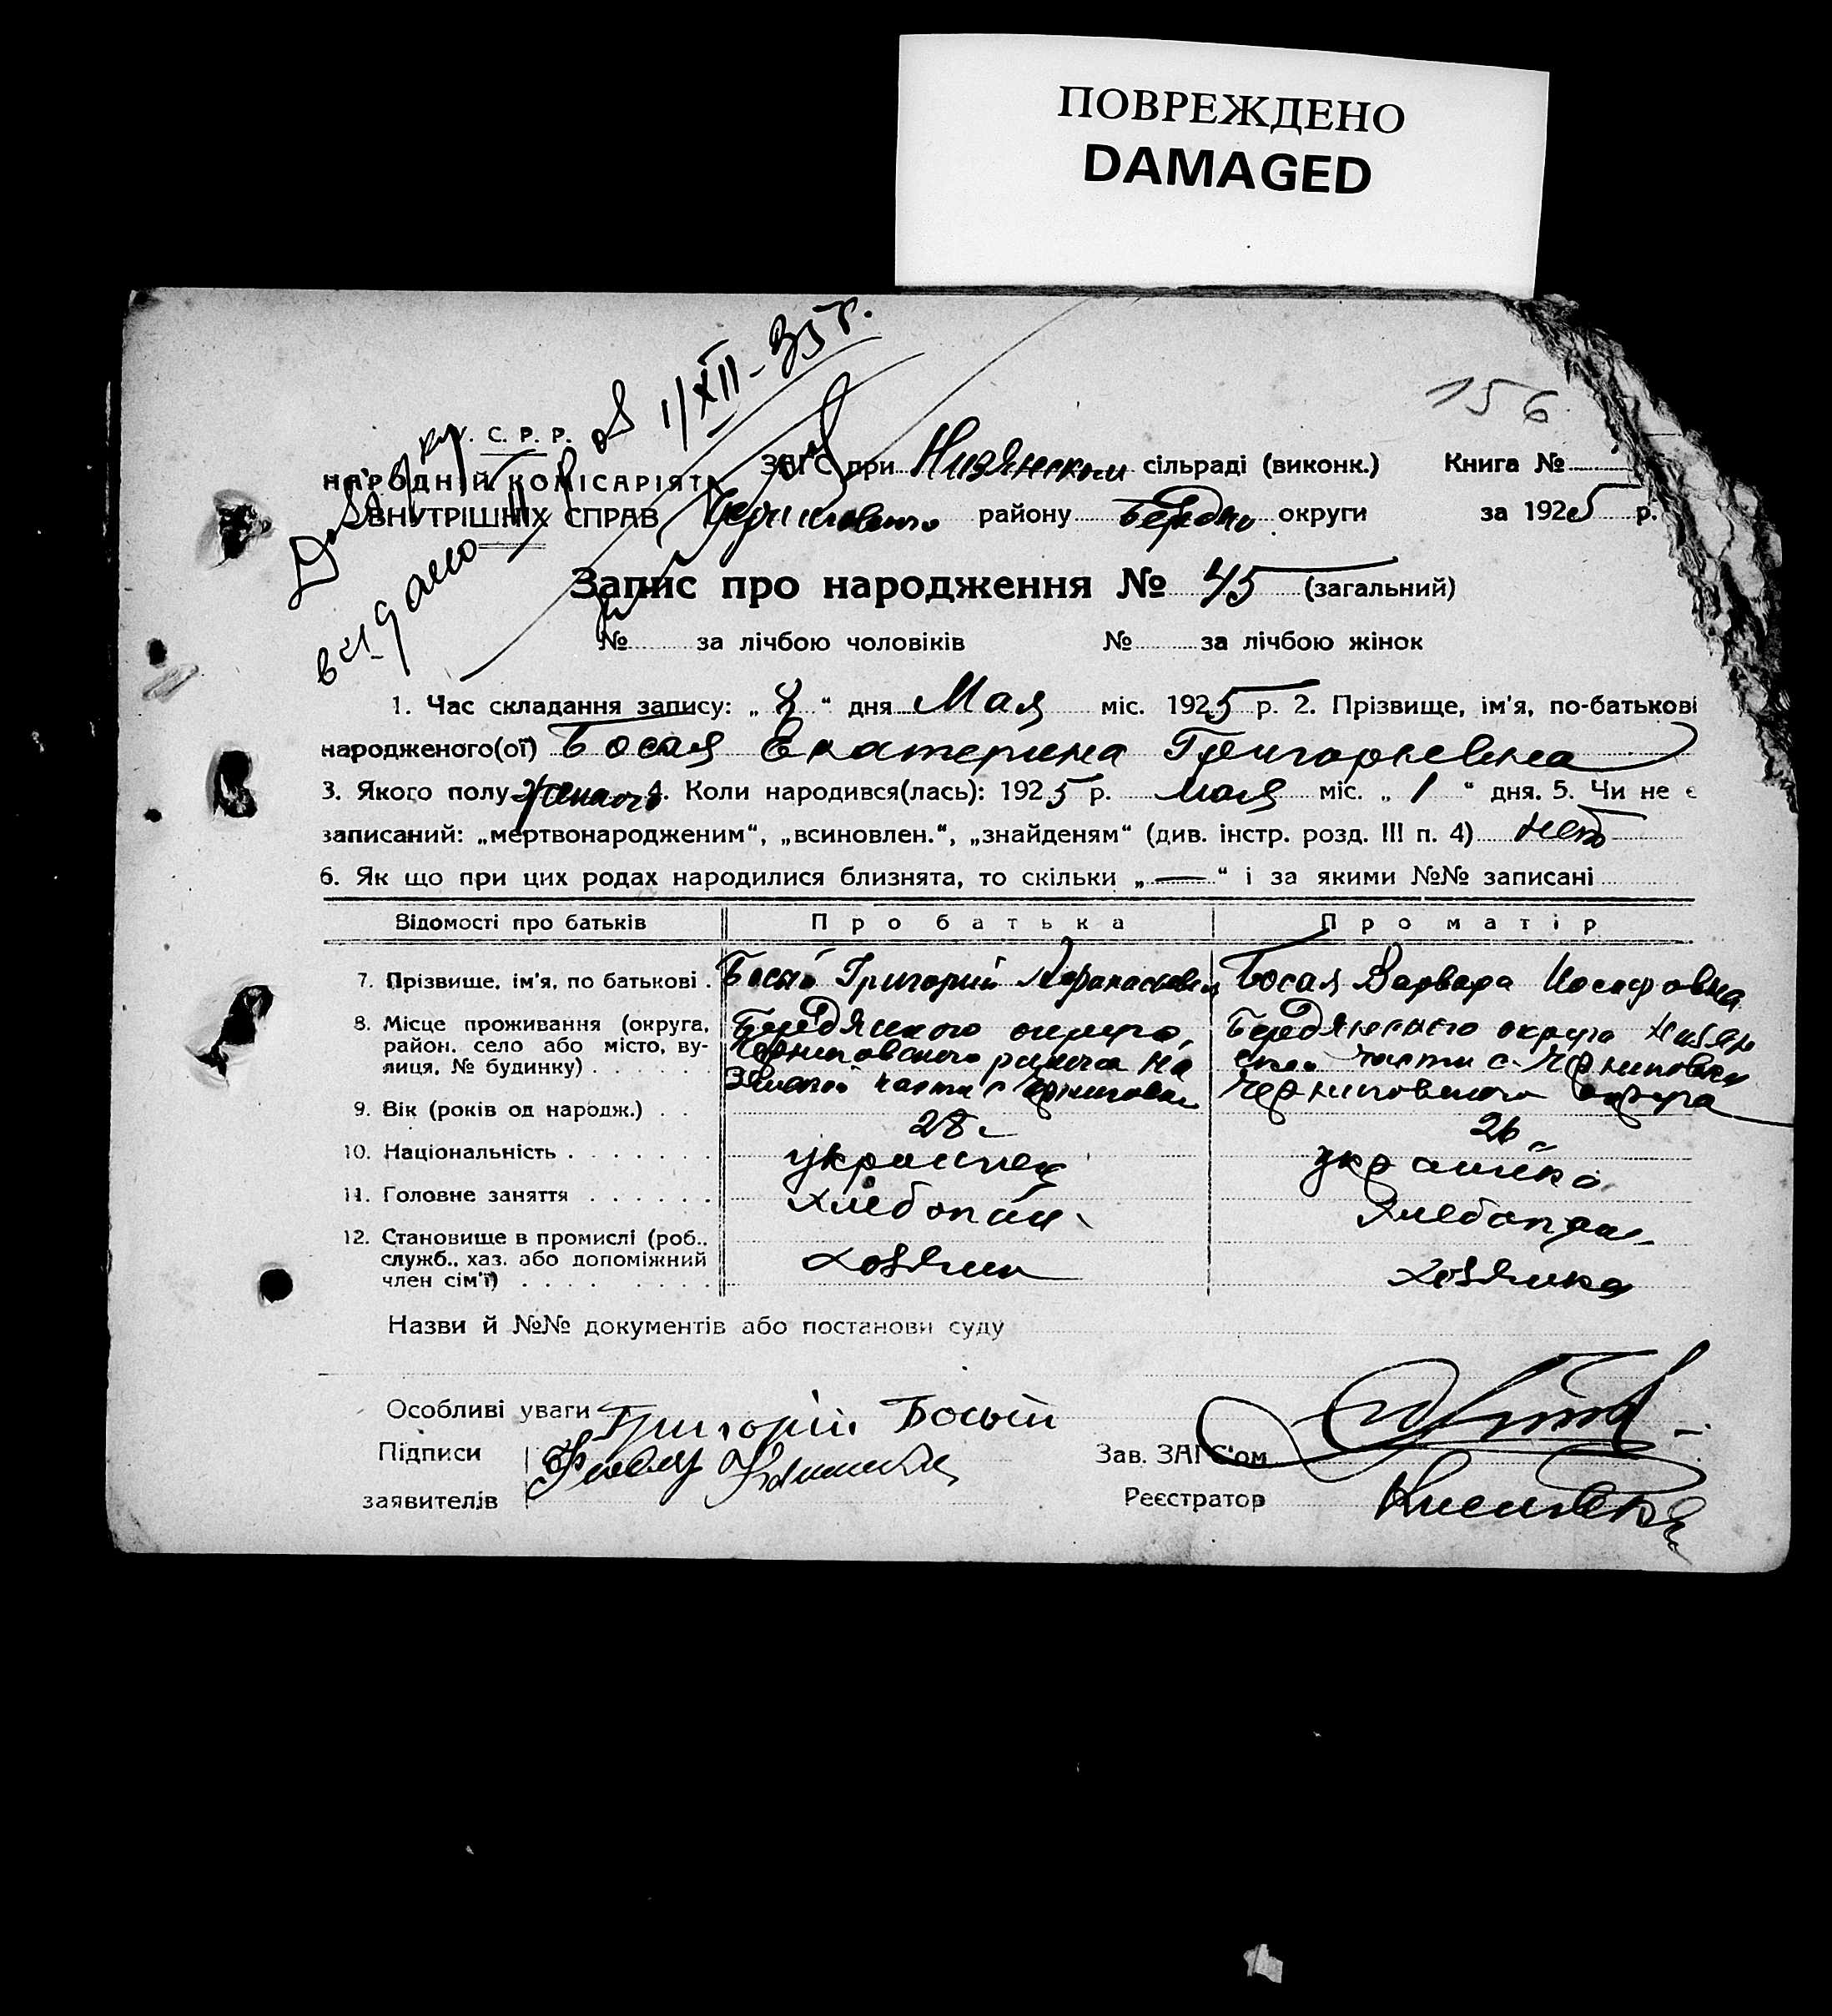 ПОВРЕЖДЕНО
DAMAGED
156
1/XII-35 г.
Довідку
видано
С. Р. Р.
НАРОДНІЙ КОМІСАРІЯТ
ВНУТРІШНІХ СПРАВ
ЗАГС при Низянском сільраді (виконк.) Книга №
Черниговского району Бердян. округи за 1925 р.
Запис про народження № 45 (загальний)
№ за лічбою чоловіків № за лічбою жінок
1. Час складання запису: „ 8 “ дня Мая міс. 1925 р. 2. Прізвище, ім'я, по-батькові
народженого(ої) Босая Екатерина Григорьевна
3. Якого полу женского 4. Коли народився(лась): 1925 р. мая міс. „ 1 “ дня. 5. Чи не є
записаний: „мертвонародженим“, „всиновлен.“, „знайденям“ (див. інстр. розд. III п. 4) нет
6. Як що при цих родах народилися близнята, то скільки „ — “ і за якими №№ записані
Відомості про батьків Про батька Про матір
7. Прізвище, ім'я, по батькові . Босый Григорий Афанасьевич Босая Варвара Иосифовна
8. Місце проживання (округа, Бердянского округа, Бердянского округа Низян
район, село або місто, ву- Черниговского района Ни ской части с. Черниговки
лиця, № будинку) . . . . . . зянской части с Черниговки Черниговского округа
9. Вік (років од народж.) . . 28 26
10. Національність . . . . . . . украинец украинка
11. Головне заняття . . . . . . хлебопаш. хлебопаш.
12. Становище в промислі (роб.,
служб., хаз. або допоміжний хозяин хозяйка
член сім'ї) . . . . . . . .
Назви й №№ документів або постанови суду
Особливі уваги Григорій Босый
Підписи
Зав. ЗАГС'ом
заявителів
Реєстратор